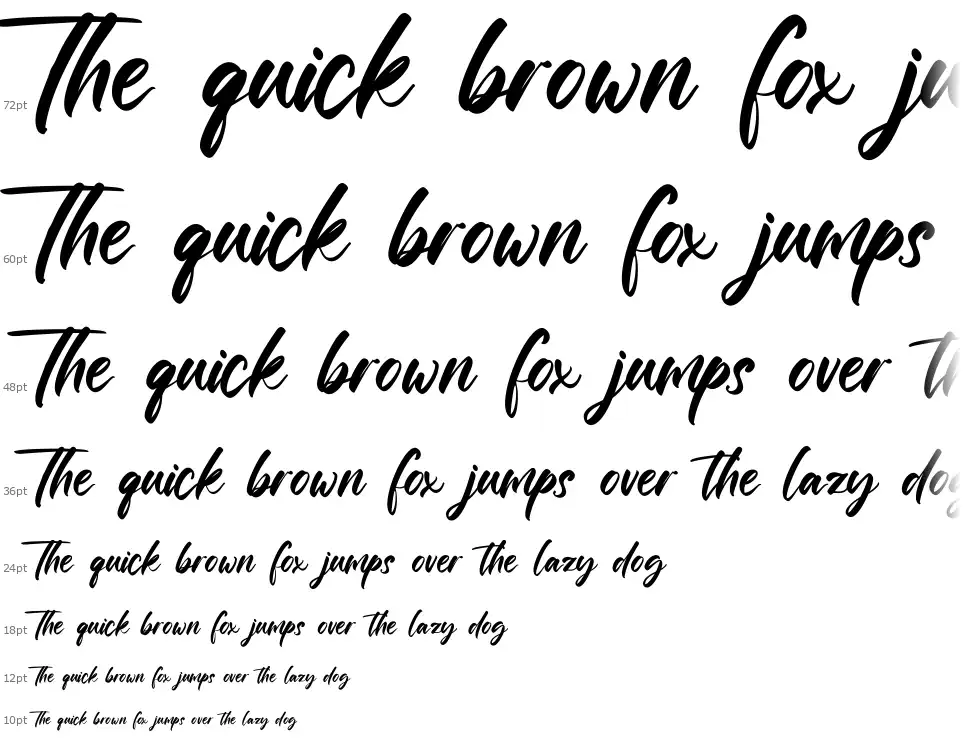 72pt The quick brown fox ju
60pt The quick brown fox jumps
48pt The quick brown fox jumps over th
36pt The quick brown fox jumps over the lazy dog
24pt The quick brown fox jumps over the lazy dog
18pt The quick brown fox jumps over the lazy dog
12pt The quick brown fox jumps over the lazy dog
10pt The quick brown fox jumps over the lazy dog